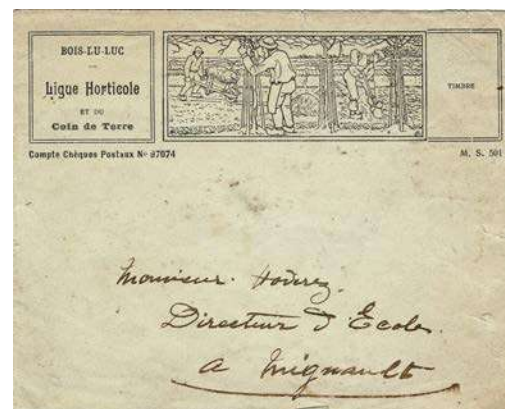 BOIS-LU-LUC
Ligue Horticole
ET DU
Coin de Terre
TIMBRE
Compte Chèques Postaux No 87074
M. S. 501
Monsieur
Directeur d'Ecole
a Mignault